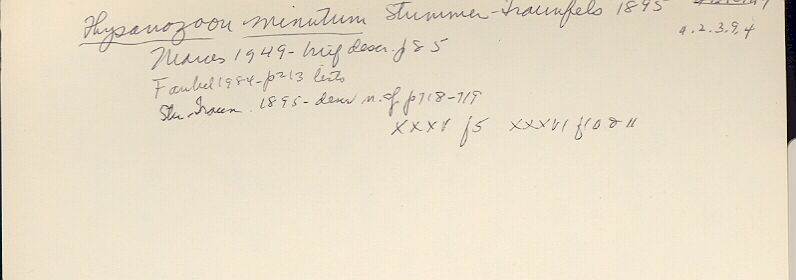 Thysanozoon minutum Stummer-Traunfels 1895
a. 2. 3. 9. 4
Marcus 1949 - brief descr. p 85
Faubel 1984 - p 213 lists
Stu-Traun. 1895 - descr n. sp p718-719
XXXV f5 XXXVI f10 & 11